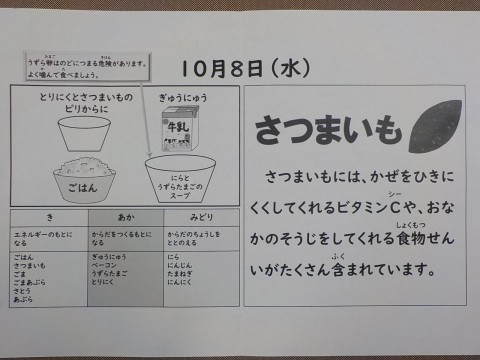 うずら卵はのどにつまる危険があります。
よく噛んで食べましょう。
10月8日（水）
とりにくとさつまいもの
ピリからに
ぎゅうにゅう
牛乳
ごはん
にらと
うずらたまごの
スープ
き
あか
みどり
エネルギーのもとに
なる
からだをつくるもとに
なる
からだのちょうしを
ととのえる
ごはん
さつまいも
ごま
ごまあぶら
さとう
あぶら
ぎゅうにゅう
ベーコン
うずらたまご
とりにく
にら
にんじん
たまねぎ
にんにく
さつまいも
さつまいもには、かぜをひきに
くくしてくれるビタミンCや、おな
かのそうじをしてくれる食物せん
いがたくさん含まれています。